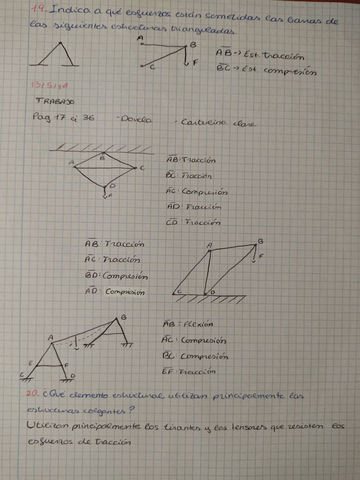 19. Indica a qué esfuerzos están sometidas las barras de
las siguientes estructuras trianguladas.
A
B
C
F
AB → Est. tracción
BC → Est. compresión
13/5/19
TRABAJO
Pag 17 a 36 - Dovela - Cartulina clase
B
A
C
D
F
AB: Tracción
BC: Tracción
AC: Compresión
AD: Tracción
CD: Tracción
AB: Tracción
AC: Tracción
BD: Compresión
AD: Compresión
A
B
F
C
D
B
A
F
E
F
C
D
AB = Flexión
AC: Compresión
BC: Compresión
EF: Tracción
20. ¿Qué elemento estructural utilizan principalmente las
estructuras colgantes?
Utilizan principalmente los tirantes y los tensores que resisten los
esfuerzos de tracción